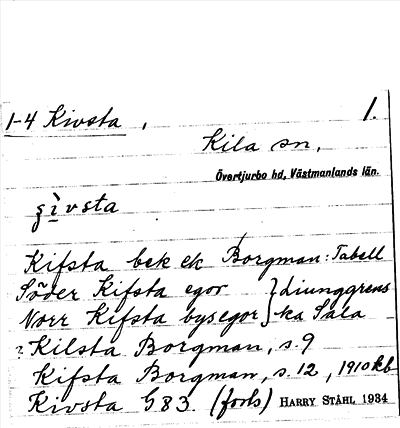 1-4 Kivsta, 1.
Kila sn,
Övertjurbo hd, Västmanlands län.
ʒìvsta
Kifsta bek ek Borgman: Tabell
Söder Kifsta egor } diunggrens
Norr Kifsta bysegor } ka Sala
? Kilsta Borgman, s. 9
Kifsta Borgman, s. 12, 1910 kb
Kivsta G83. (forts) HARRY STÅHL 1934